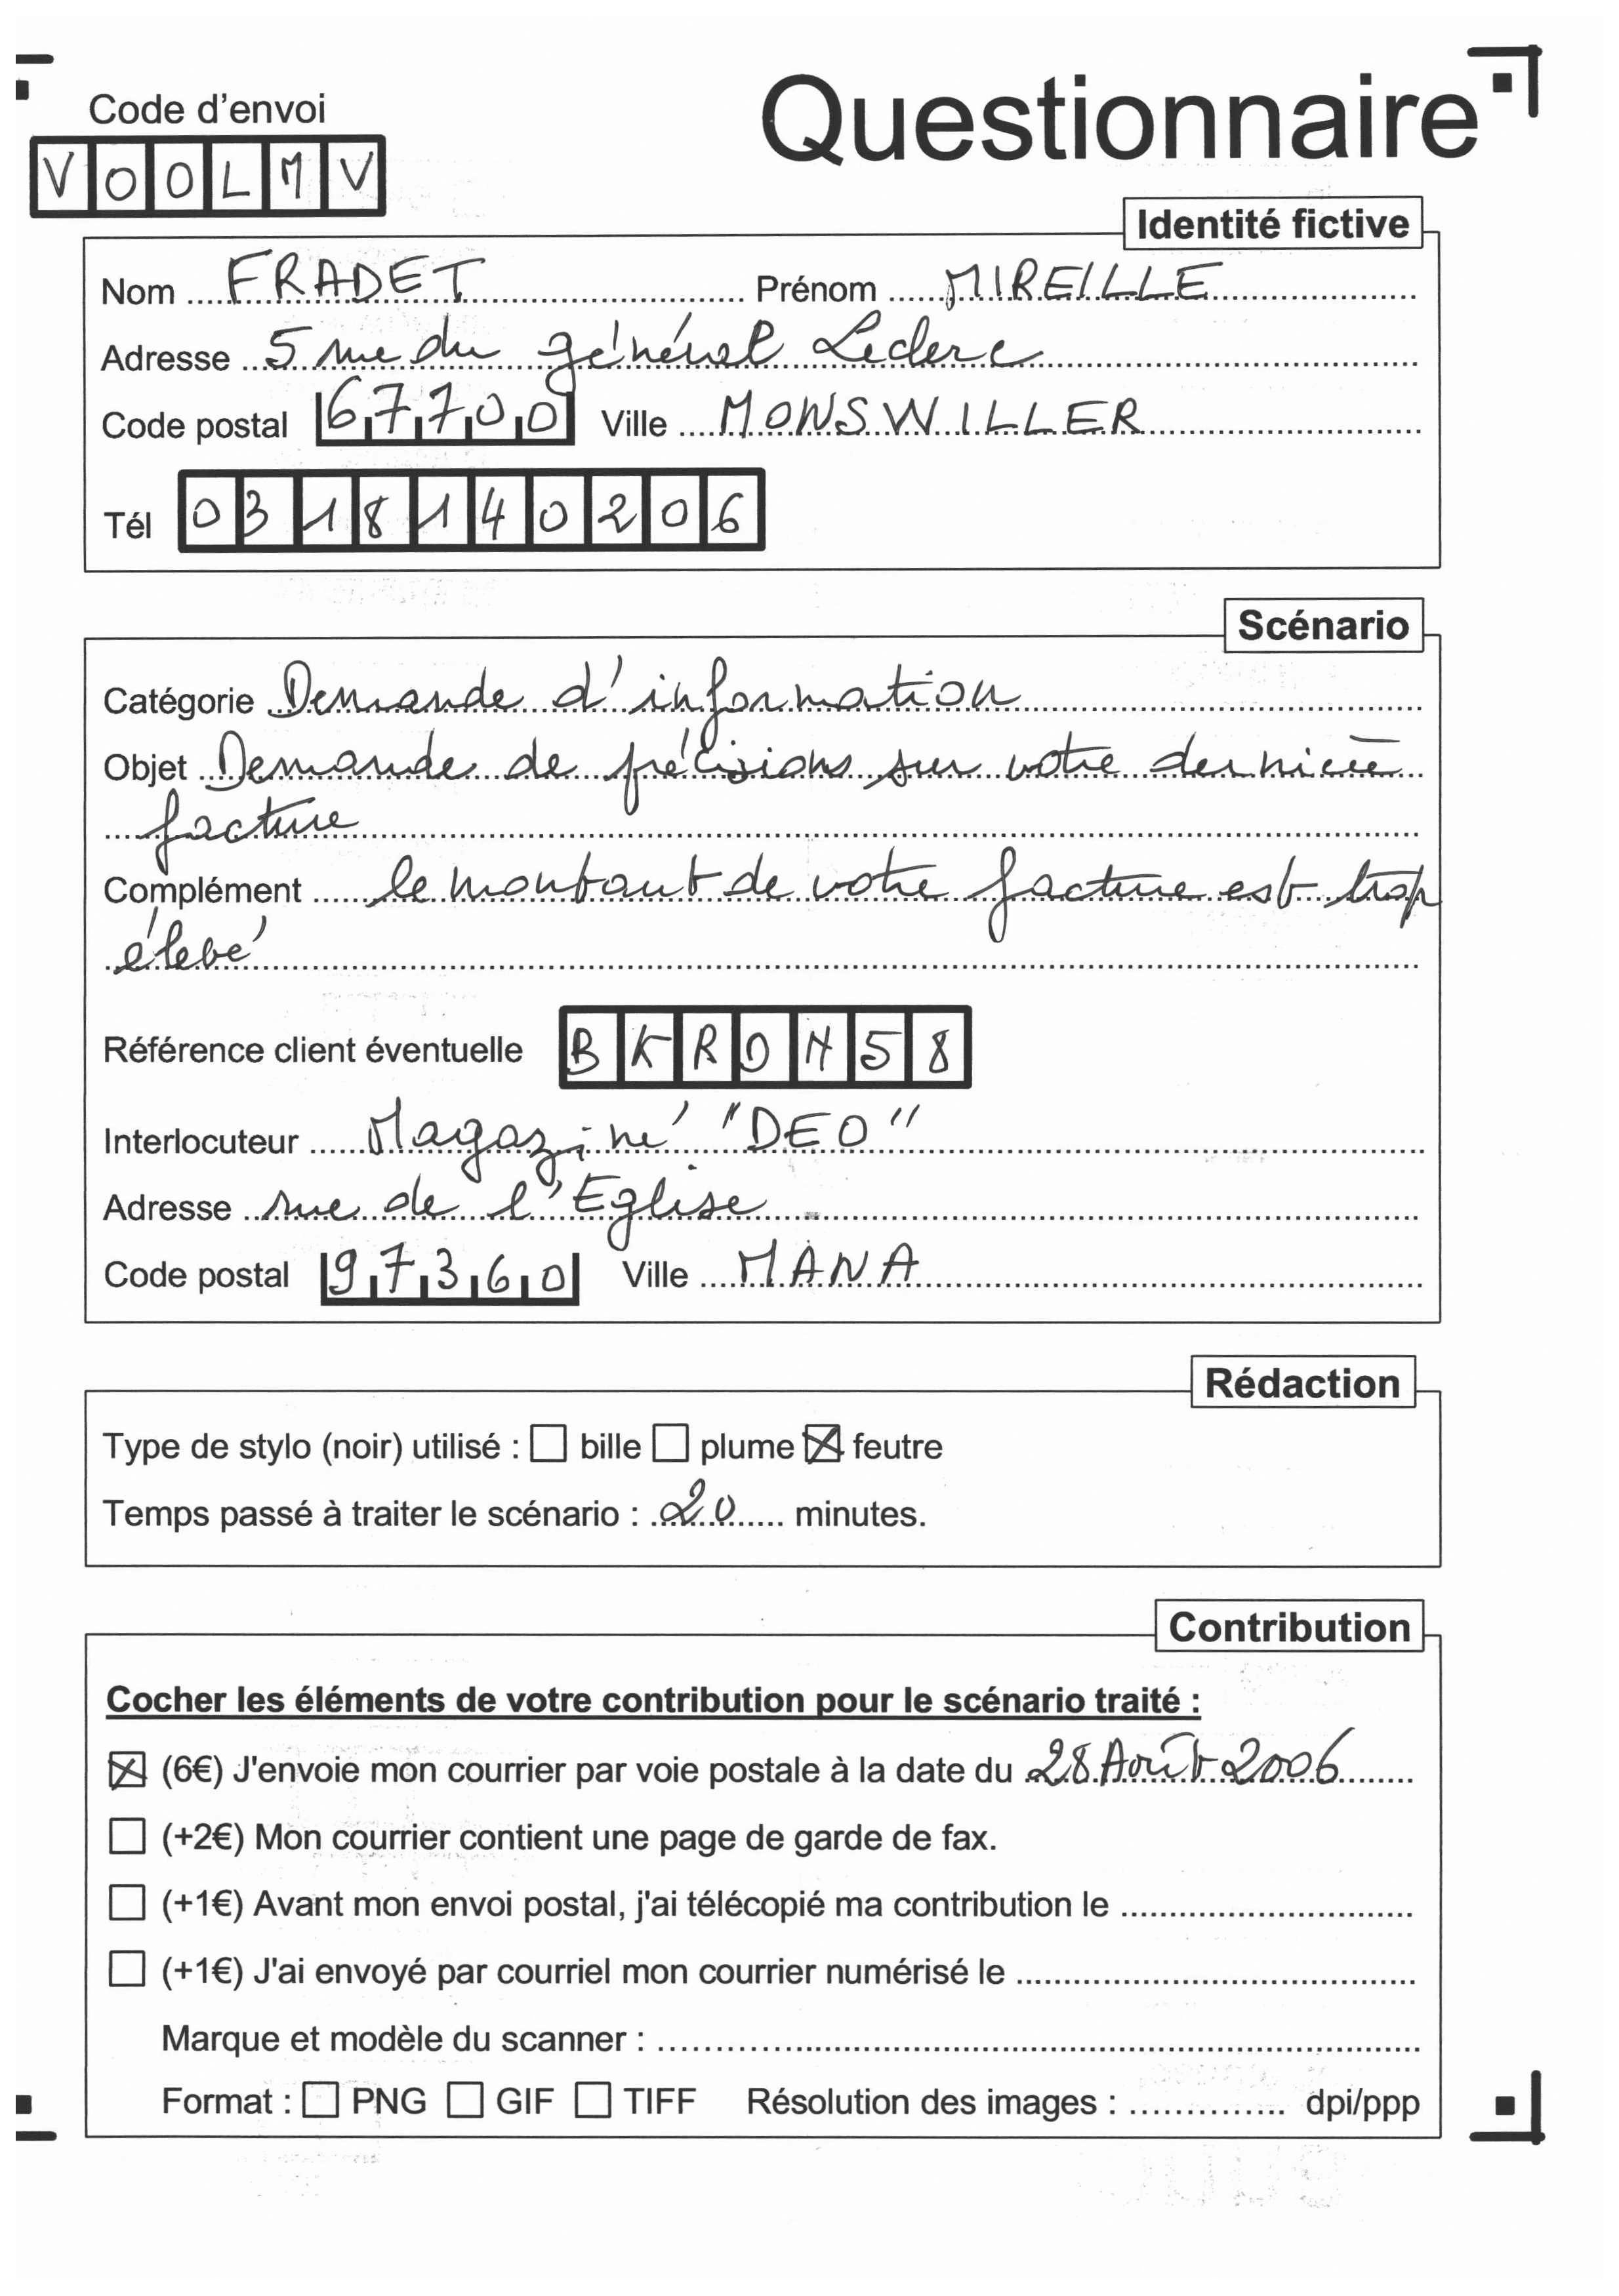 Questionnaire
Code d'envoi
VOOLMV
Identité fictive
Nom FRADET Prénom MIREILLE
Adresse 5 rue du général Leclerc
Code postal 67700 Ville MONSWILLER
Tél 0318140206
Scénario
Catégorie Demande d'information
Objet Demande de précisions sur votre dernière
facture
Complément le montant de votre facture est trop
élebé
Référence client éventuelle BKRON58
Interlocuteur Magazine "DEO"
Adresse rue de l'Eglise
Code postal 97360 Ville MANA
Rédaction
Type de stylo (noir) utilisé : ☐ bille ☐ plume ☒ feutre
Temps passé à traiter le scénario : 20 minutes.
Contribution
Cocher les éléments de votre contribution pour le scénario traité :
☒ (6€) J'envoie mon courrier par voie postale à la date du 28 Août 2006
☐ (+2€) Mon courrier contient une page de garde de fax.
☐ (+1€) Avant mon envoi postal, j'ai télécopié ma contribution le
☐ (+1€) J'ai envoyé par courriel mon courrier numérisé le
Marque et modèle du scanner :
Format : ☐ PNG ☐ GIF ☐ TIFF Résolution des images : dpi/ppp